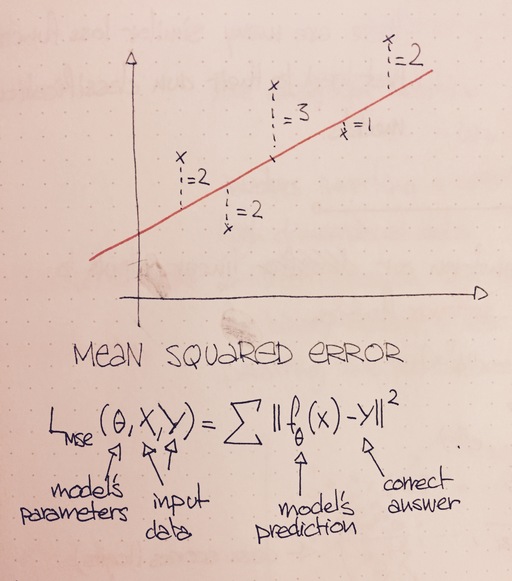 =2
=3
=1
=2
=2
MEAN SQUARED ERROR
L_MSE (θ, X, Y) = ∑ || f_θ (x) - y ||²
model's parameters
input data
model's prediction
correct answer